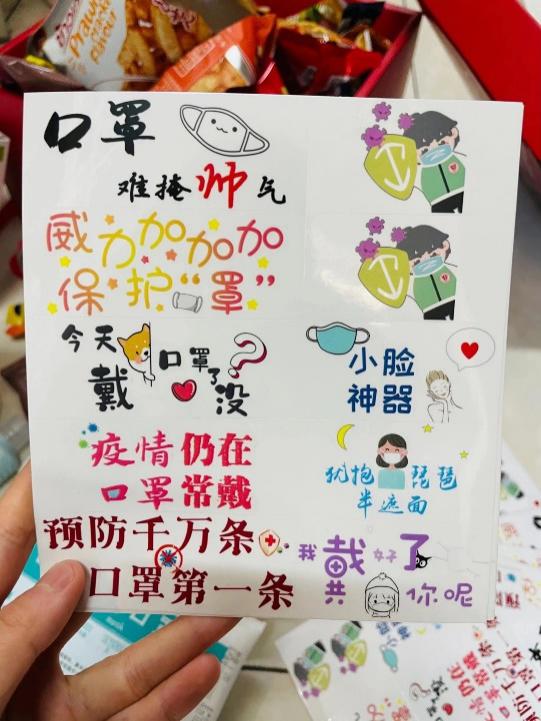 Prawn
cracker
flavour
口罩
难掩帅气
威力加加加加
保护“罩”
今天
戴口罩了没?
小脸
神器
疫情仍在
口罩常戴
犹抱琵琶
半遮面
预防千万条
口罩第一条
我戴好了
共你呢